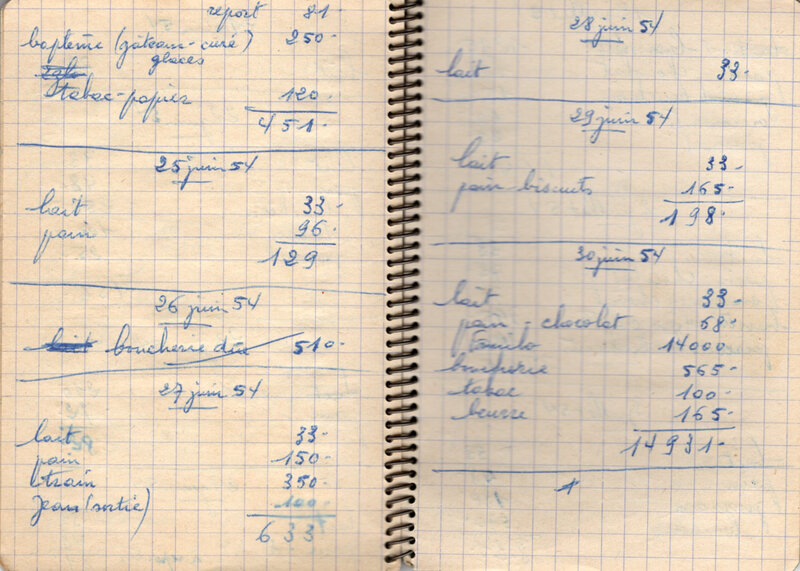 report 81-
baptême (gâteau-curé) 250-
glaces
tabac-papier 120-
451-
25 juin 54
lait 33-
pain 96-
129-
26 juin 54
lait boucherie due 510-
27 juin 54
lait 33-
pain 150-
train 350-
Jean (sortie) 100-
633
28 juin 54
lait 33-
29 juin 54
lait 33-
pain-biscuits 165-
198-
30 juin 54
lait 33-
pain-chocolat 68-
14000
boucherie 565-
tabac 100-
beurre 165-
14931-